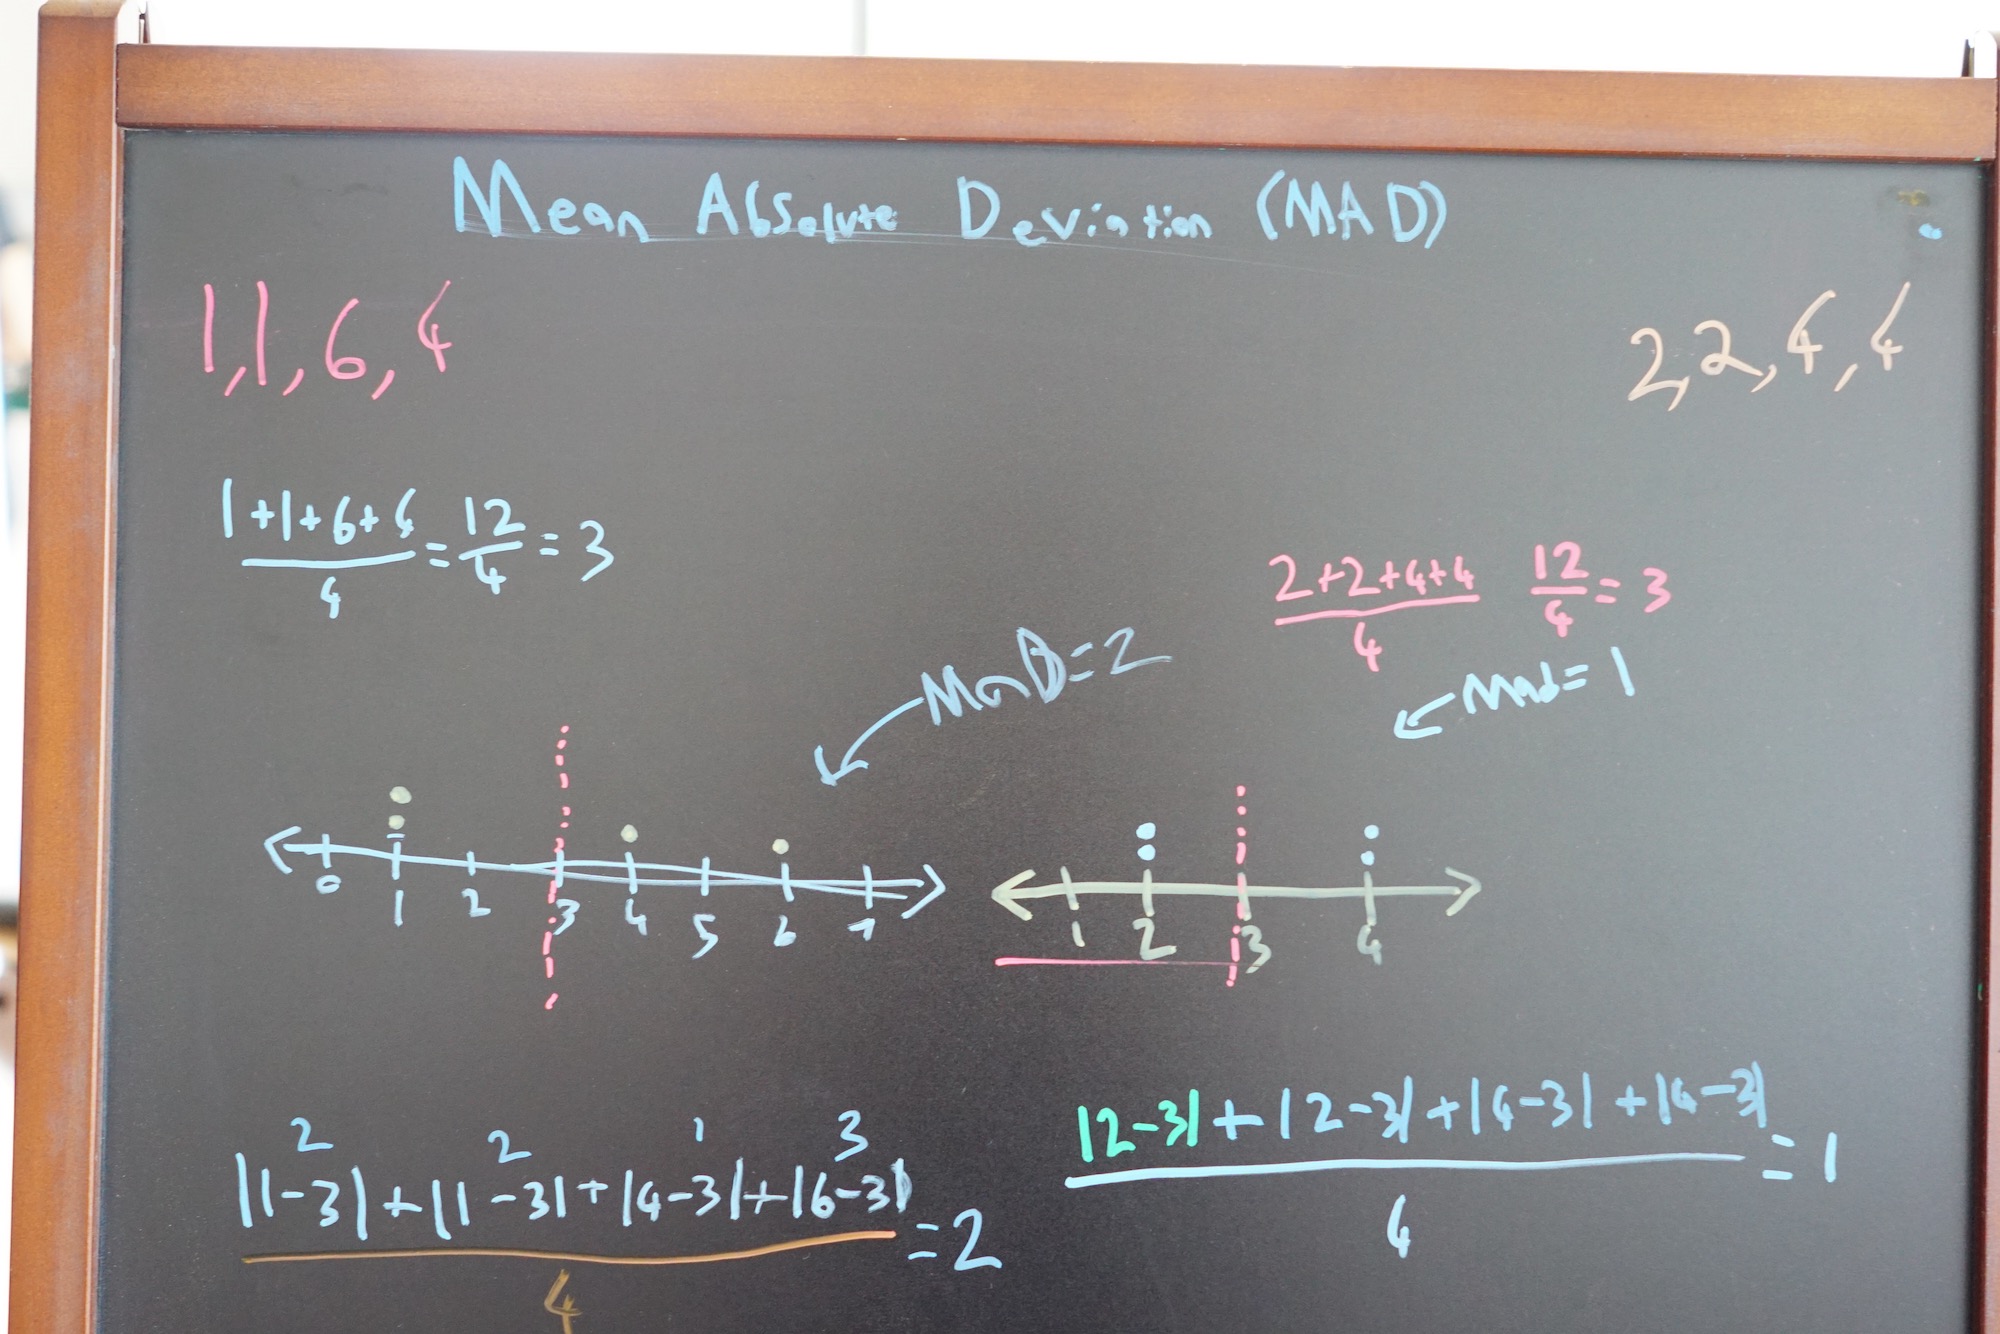 Mean Absolute Deviation (MAD)
1, 1, 6, 4
2, 2, 4, 4
1+1+6+4
4
= 12/4 = 3
2+2+4+4
4
12/4 = 3
MaD=2
Mad=1
0 1 2 3 4 5 6 7
1 2 3 4
2 2 1 3
|1-3|+|1-3|+|4-3|+|6-3|
4
=2
|2-3|+|2-3|+|4-3|+|4-3|
4
=1